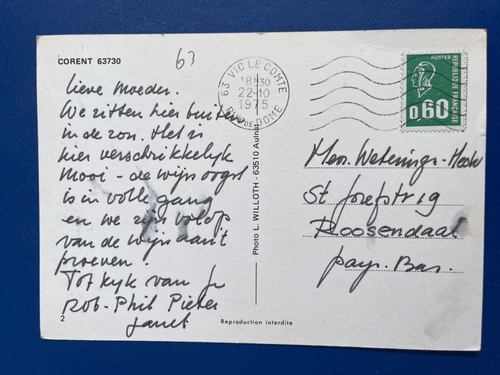 CORENT 63730
63
63 VIC LE COMTE
18H30
22-10
1975
PUY DE DOME
REPUBLIQUE FRANÇAISE
0,60
Lieve Moeder.
We zitten hier buiten
in de zon. Het is
hier verschrikkelijk
mooi - de wijnoogst
is in volle gang
en we zijn volop
van de wijn aan't
proeven.
Tot kijk van
Rob - Phil Pieter
Janet
2
Photo L. WILLOTH - 63510 Aulnat
Reproduction interdite
Mev. Weterings-
St Josefstr 19
Roosendaal
Pays. Bas.